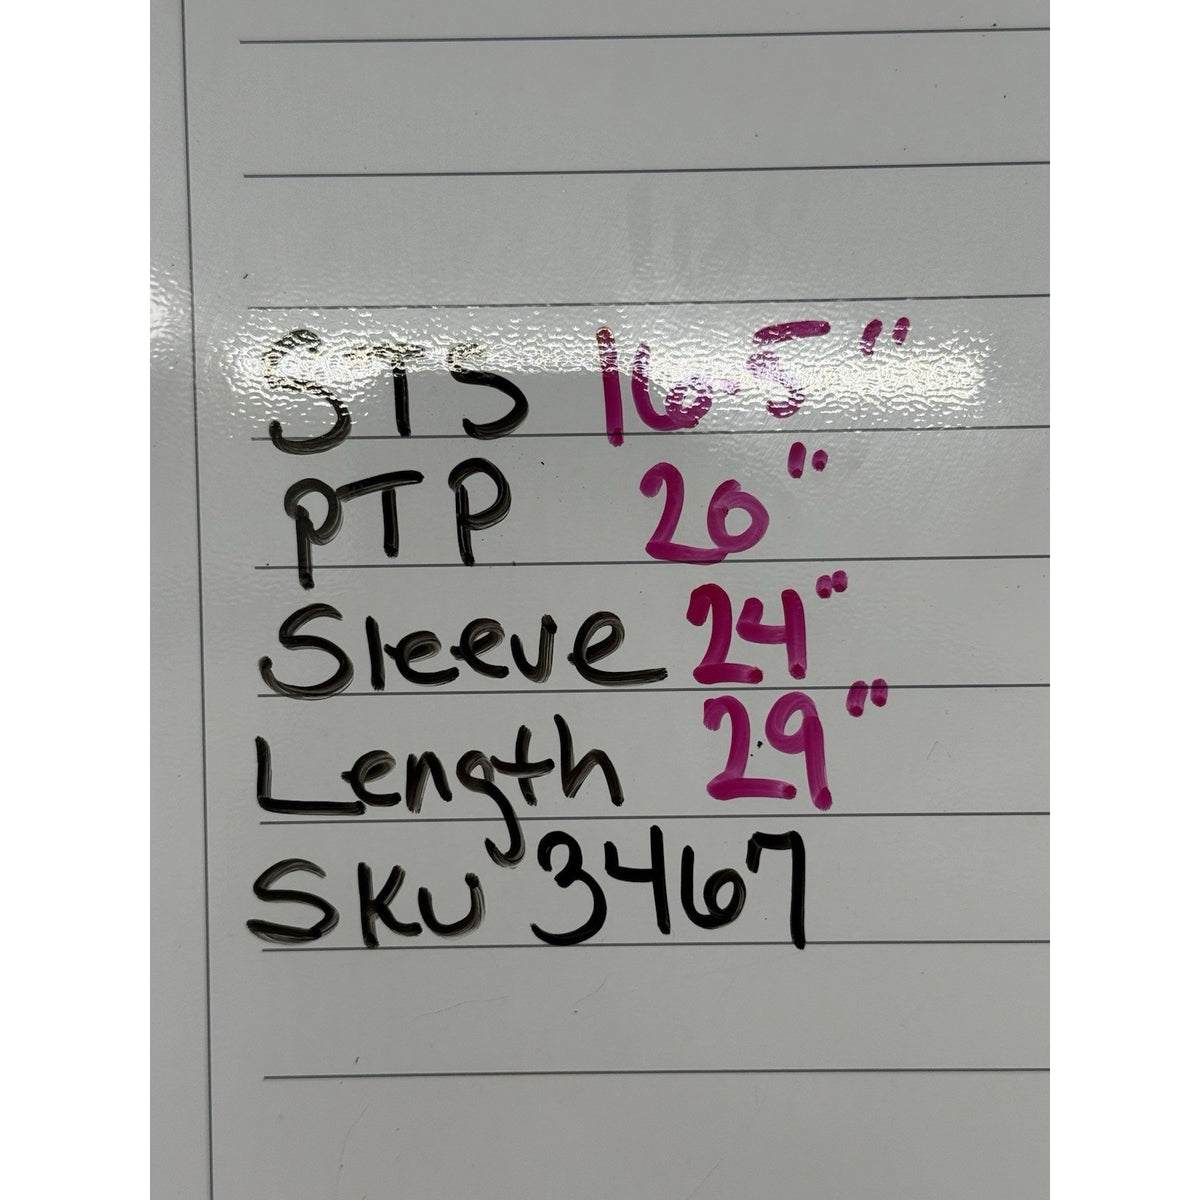 STS 16.5"
PTP 20"
Sleeve 24"
Length 29"
SKU 3467